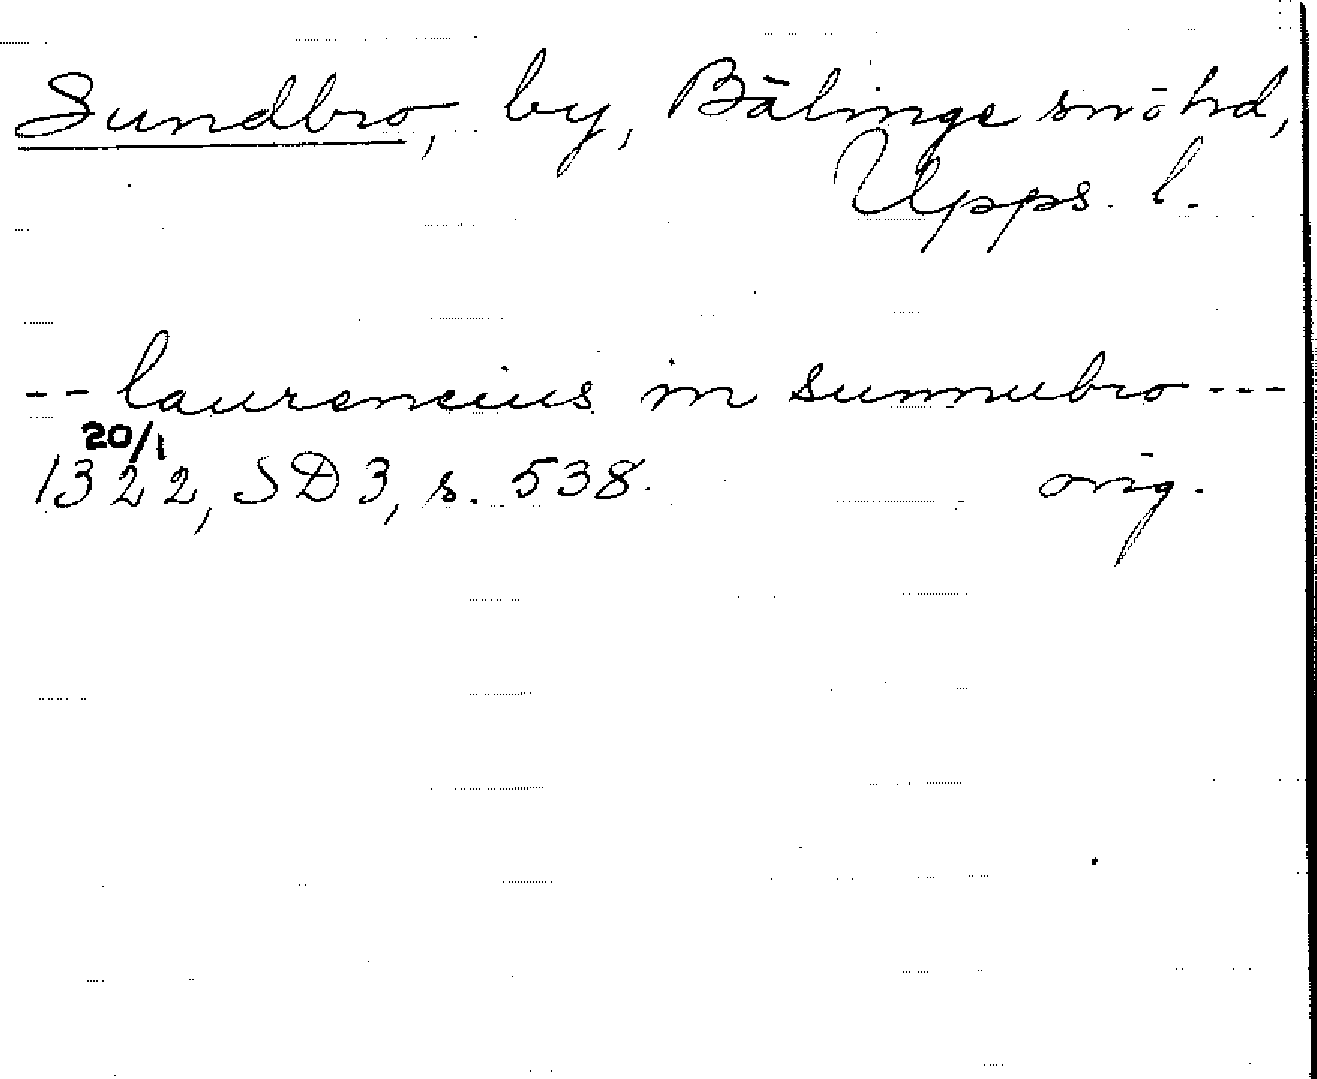 Sundbro, by, Bälinge snöhd,
Upps. l.
-- laurencius in sunnubro ---
20/1
1322, SD 3, s. 538. orig.